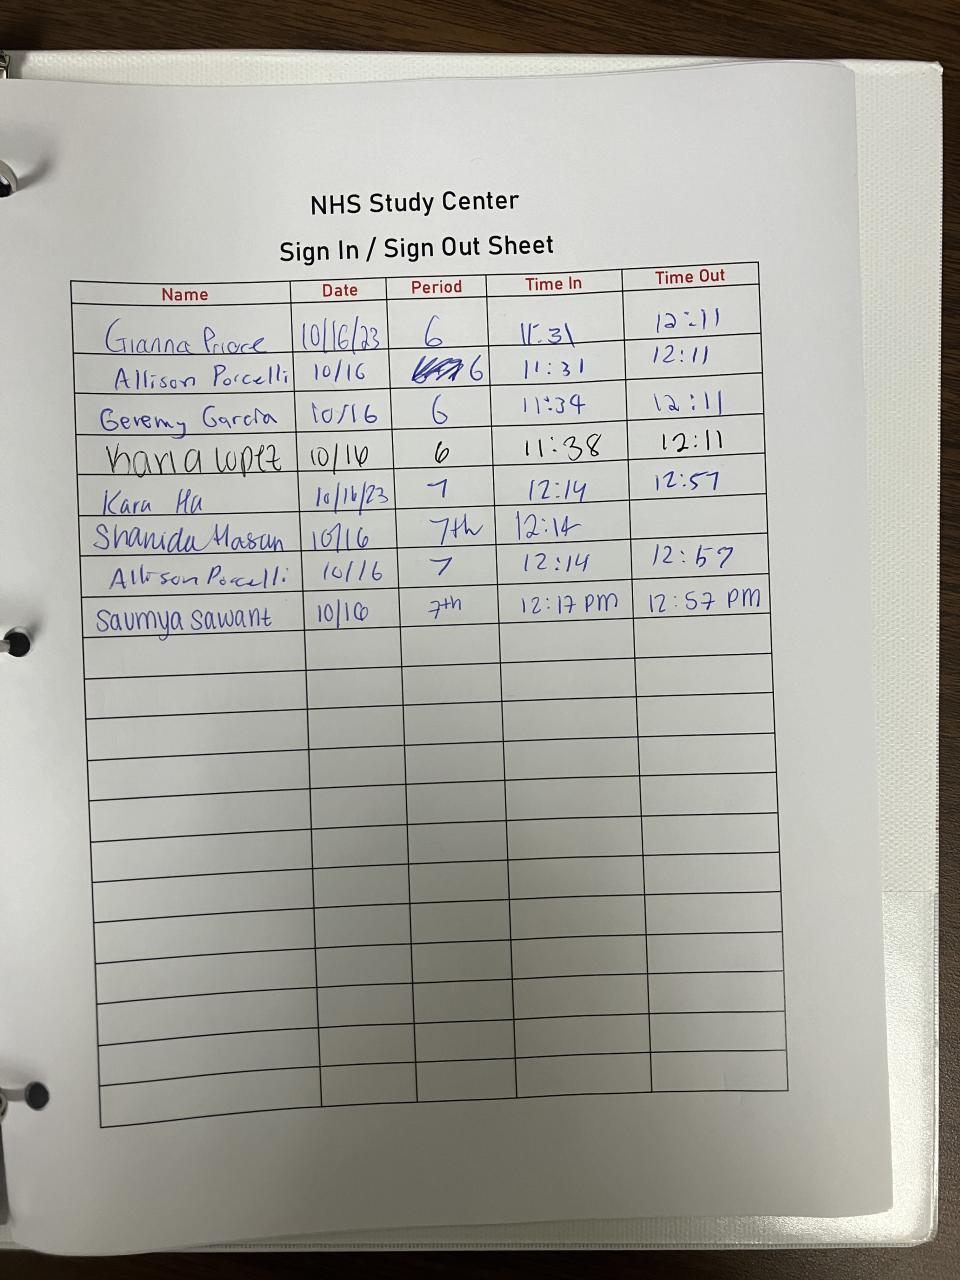 NHS Study Center
Sign In / Sign Out Sheet
Name Date Period Time In Time Out
Gianna Priore 10/16/23 6 11:31 12:11
Allison Porcelli 10/16 6 11:31 12:11
Geremy Garcia 10/16 6 11:34 12:11
Karla Lopez 10/16 6 11:38 12:11
Kara Ha 10/16/23 7 12:14 12:57
Shanida Hasan 10/16 7th 12:14
Allison Porcelli 10/16 7 12:14 12:57
Saumya Sawant 10/16 7th 12:17 PM 12:57 PM